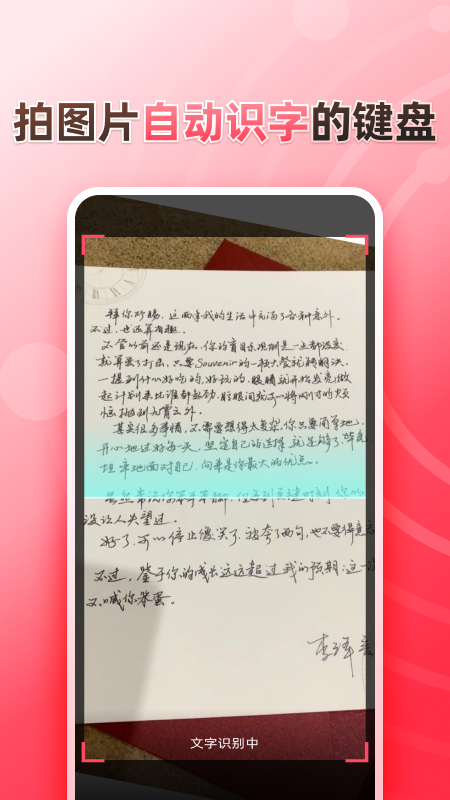 拍图片自动识字的键盘
拜你所赐，这两年我的生活中充满了各种意外。
不过，也还算有趣。
不管以前还是现在，你的盲目乐观倒是一点都没变
就算受了打击，只要Souvenir的一根大葱就能解决。
一提到什么好吃的，好玩的，眼睛就开始发亮，做
起计划来比谁都起劲，眨眼间就可以将刚才的烦
恼抛到九霄云外。
其实很多事情，不需要想得太复杂，你只要简单地，
开心地过好每一天，坚定自己的选择，就足够了。毕竟
坦率地面对自己，向来是你最大的优点。
虽然常说你笨手笨脚，但每到关键时刻，你从
没让人失望过。
好了，可以停止傻笑了，被夸了两句，也不要得意忘
不过，鉴于你的成长远远超过我的预期，这一次
不喊你笨蛋。
李泽言
文字识别中